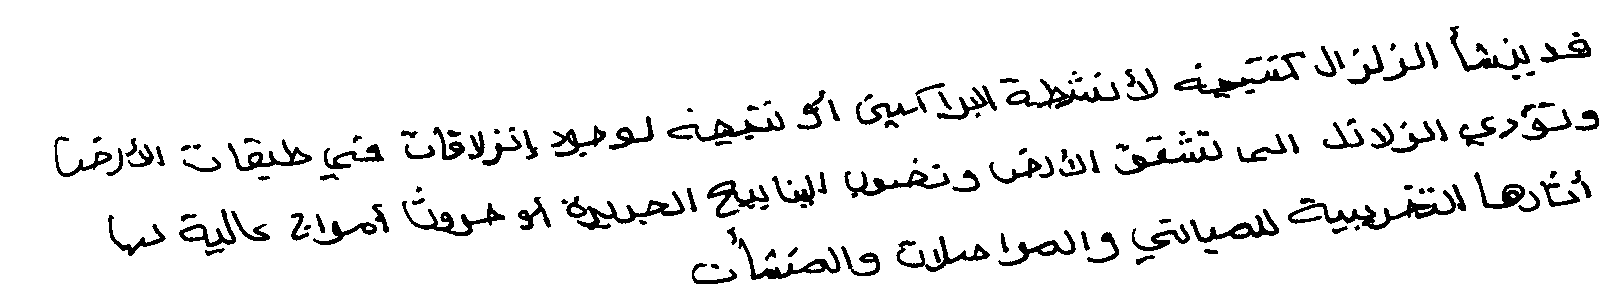 قد ينشأ الزلزال كنتيجة لأنشطة البراكين أو نتيجة لوجود إنزلاقات في طبقات الأرض
وتؤدي الزلازل الى تشقق الأرض ونضوب الينابيع الجديدة أو حدوث أمواج عالية لها
أثارها التخريبية للمباني والمواصلات والمنشأت